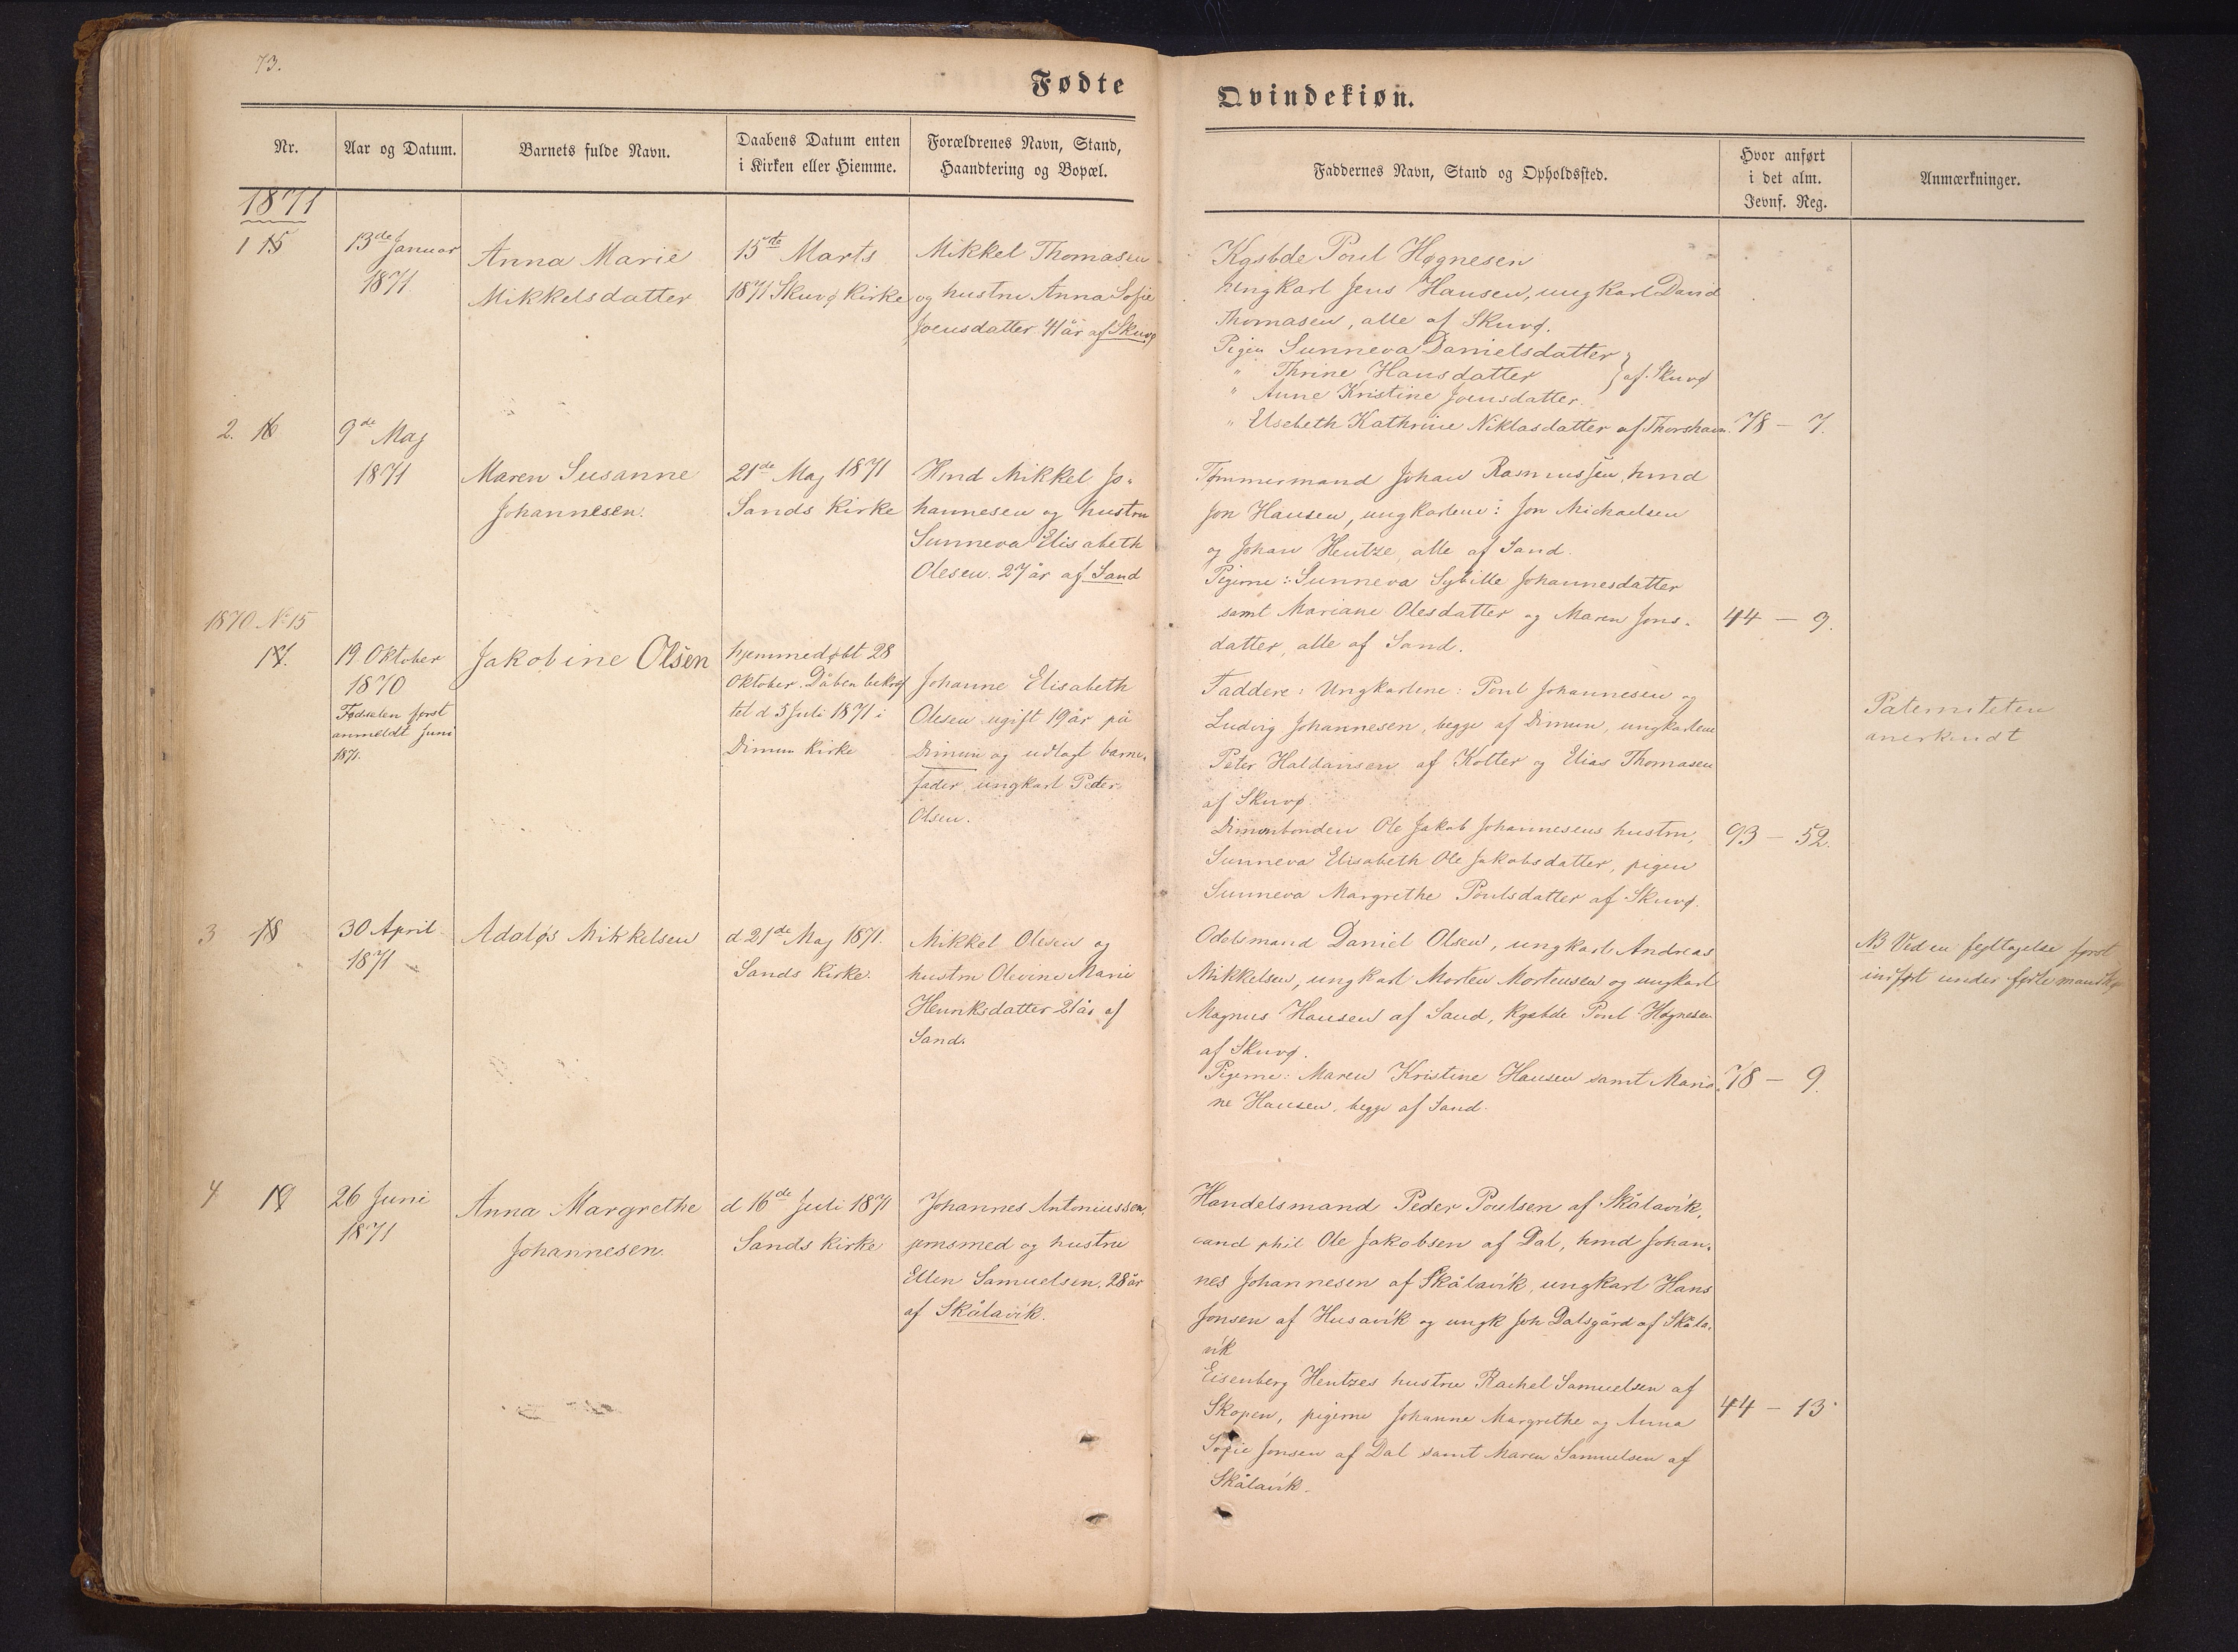 73.
Fødte
Qvindekiøn.
Nr.
Aar og Datum.
Barnets fulde Navn.
Daabens Datum enten
i Kirken eller Hiemme.
Forældrenes Navn, Stand,
Haandtering og Bopæl.
Faddernes Navn, Stand og Opholdssted.
Hvor anført
i det alm.
Jevnf. Reg.
Anmærkninger.
1871
1 15
13de Januar
1871
Anna Marie
Mikkelsdatter
15de Marts
1871 Skuvø Kirke
Mikkel Thomasen
og hustru Anna Sofie
Joensdatter 41 år af Skuvø
Kgsbde Poul Høgnesen
Ungkarl Jens Hansen, ungkarl David
Thomasen, alle af Skuvø.
Pigen Sunneva Danielsdatter
" Thrine Hansdatter } af Skuvø
" Anne Kristine Joensdatter
" Elsebeth Kathrine Niklasdatter af Thorshavn.
78 - 7.
2. 16
9de Maj
1871
Maren Susanne
Johannesen.
21de Maj 1871
Sands Kirke
Hmd Mikkel Jo-
hannesen og hustru
Sunneva Elisabeth
Olesen. 27 år af Sand
Tømmermand Johan Rasmussen, hmd
Jon Hansen, ungkarlene: Jon Michaelsen
og Johan Hentze, alle af Sand.
Pigerne: Sunneva Sybille Johannesdatter
samt Mariane Olesdatter og Maren Jons-
datter, alle af Sand.
44 - 9.
1870 No 15
17.
19 Oktober
1870
Fødselen først
anmeldt Juni
1871.
Jakobine Olsen
hjemmedøbt 28
Oktober. Dåben bekræf
tet d 3 Juli 1871 i
Dimun Kirke
Johanne Elisabeth
Olesen ugift 19 år på
Dimun og udlagt barne-
fader ungkarl Peter
Olsen.
Faddere: Ungkarlene: Poul Johannesen og
Ludvig Johannesen, begge af Dimun, ungkarlene
Peter Haldansen af Kolter og Elias Thomasen
af Skuvø.
Dimonbonden Ole Jakob Johannesens hustru,
Sunneva Elisabeth Ole Jakobsdatter, pigen
Sunneva Margrethe Poulsdatter af Skuvø.
93 - 52.
Paterniteten
anerkendt
3 18
30 April
1871
Adaløs Mikkelsen
d 21de Maj 1871.
Sands Kirke.
Mikkel Olesen og
hustru Olevine Marie
Henriksdatter 21 år af
Sand.
Odelsmand Daniel Olsen, ungkarl Andreas
Mikkelsen, ungkarl Morten Mortensen og ungkarl
Magnus Hansen af Sand, Kgsbde Poul Høgnesen
af Skuvø.
Pigerne: Maren Kristine Hansen samt Maria-
ne Hansen, begge af Sand.
78 - 9.
NB Ved en fejltagelse først
indført under fødte mandkjø
4 19
26 Juni
1871
Anna Margrethe
Johannesen.
d 16de Juli 1871
Sands Kirke
Johannes Antoniussen,
jernsmed og hustru
Ellen Samuelsen, 28 år
af Skålavik.
Handelsmand Peder Poulsen af Skålavik,
cand phil Ole Jakobsen af Dal, hmd Johan-
nes Johannesen af Skålavik, ungkarl Hans
Jonsen af Husavik og ungk Joh Dalsgård af Skåla-
vik
Eisenberg Hentzes hustru Rachel Samuelsen af
Skopen, pigerne Johanne Margrethe og Anna
Sofie Jonsen af Dal samt Maren Samuelsen af
Skålavik.
44 - 13